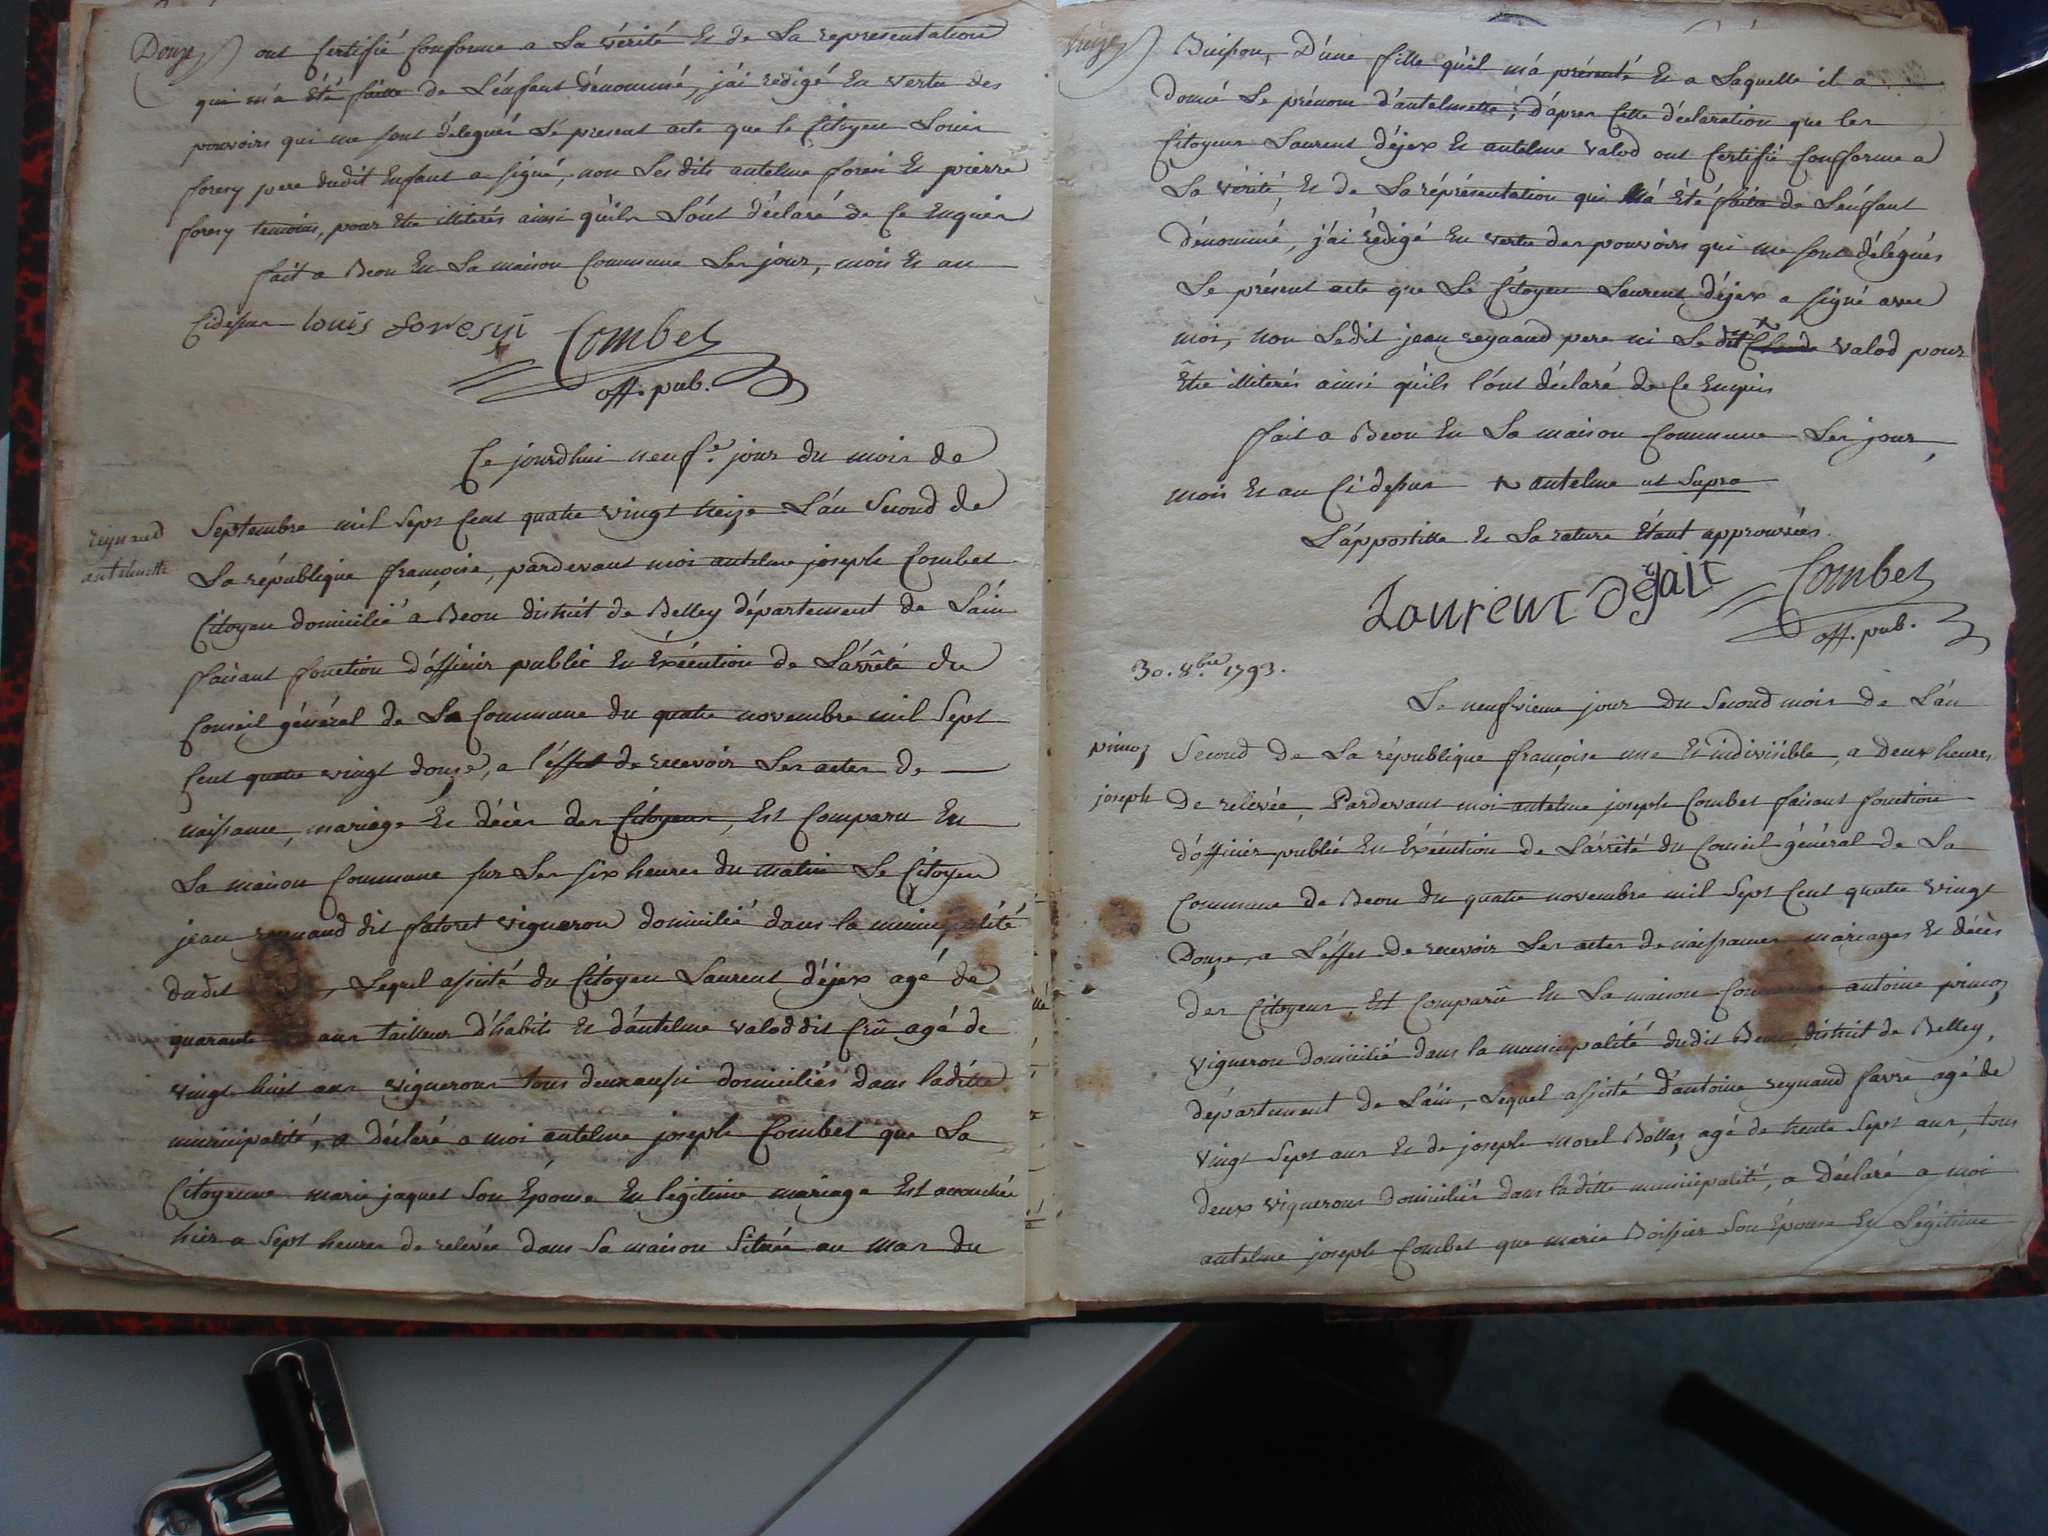 Douze
ont Certifié Conforme a La vérité Et de La representation
qui m'a été faitte de L'énfant dénommé, j'ái redigé En vertu des
pouvoirs qui me sont délegués Le present acte que le Citoyen Louis
foresy pere dudit Enfant a signé, non Les dits antelme foresi Et pierre
foresy temoins, pour Etre illiterés ainsi qúils L'ont déclaré de Ce Enquis
fait a Beon En La maison Commune Les jour, mois Et an
Cidessus louis foresyi Combet
off. pub.
Ce jourdhui neufe. jour du mois de
reynaud
antelmette
Septembre mil Sept Cent quatre vingt treize L'án Second de
La république françoise, pardevant moi antelme joseph Combet
Citoyen domicilié a Beon district de Belley département de L'áin
faisant fonction d'officier public En Exécution de L'árrêté du
Conseil général de La Commune du quatre novembre mil Sept
Cent quatre vingt douze, a l'éffet de recevoir Les actes de
naissance, mariage Et décès des Citoyens, Est Comparu En
La maison Commune sur Les six heures du matin Le Citoyen
jean reynaud dit fatoret vigneron domicilié dans la municipalité
dudit , Lequel assisté du Citoyen Laurent déjex agé de
quarante ans tailleur d'habits Et d'ántelme valod dit Crû agé de
vingt huit ans vigneron tous deux aussi domiciliés dans ladítte
municipalité, a déclaré a moi antelme joseph Combet que La
Citoyenne marie jaquet Son Epouse En légitime mariage Est acouchée
hier a Sept heures de relevée dans Sa maison Située au mas du
treize
Buisson, D'úne fille qúil m'á présenté Et a Laquelle il a
donné Le prénom d'ántelmette; d'ápres Cette déclaration que les
Citoyens Laurent déjex Et antelme valod ont Certifié Conforme a
La vérité, Et de La réprésentation qui M'á été faitte de L'énfant
dénommé, j'ái rédigé En vertu des pouvoirs qui me sont délégués
Le présent acte que Le Citoyen Laurent déjex a signé avec
moi, non Ledit jean reynaud pere ni Le dit valod pour
Être illiterés ainsi qúils l'ónt déclaré de Ce Enquis
fait a Beon En La maison Commune Les jour,
mois Et an Ci dessus antelme ut Supra
L'áppostille Et La rature Etant approuvées.
Laurent Dégait Combet
off. pub.
30. 8.bre 1793.
Le neufvieme jour du Second mois de L'án
primoz
joseph
Second de La république françoise une Et indivisible, a deux heures
de relevée, Pardevant moi antelme joseph Combet faisant fonction
d'officier public En Exécution de L'árrêté du Conseil général de La
Commune de Beon du quatre novembre mil Sept Cent quatre vingt
Douze, a L'éffet de recevoir Les actes de naissances mariages Et décès
des Citoyens, Est Comparû En La maison Commune antoine primoz
vigneron domicilié dans la municipalité dudit Beon, district de Belley,
département de L'áin, Lequel assisté d'ántoine reynaud favre agé de
vingt Sept ans Et de joseph morel Bollaz agé de trente Sept ans, tous
deux vignerons domiciliés dans laditte municipalité, a déclaré a moi
antelme joseph Combet que marie Boissier Son Epouse En Légitime